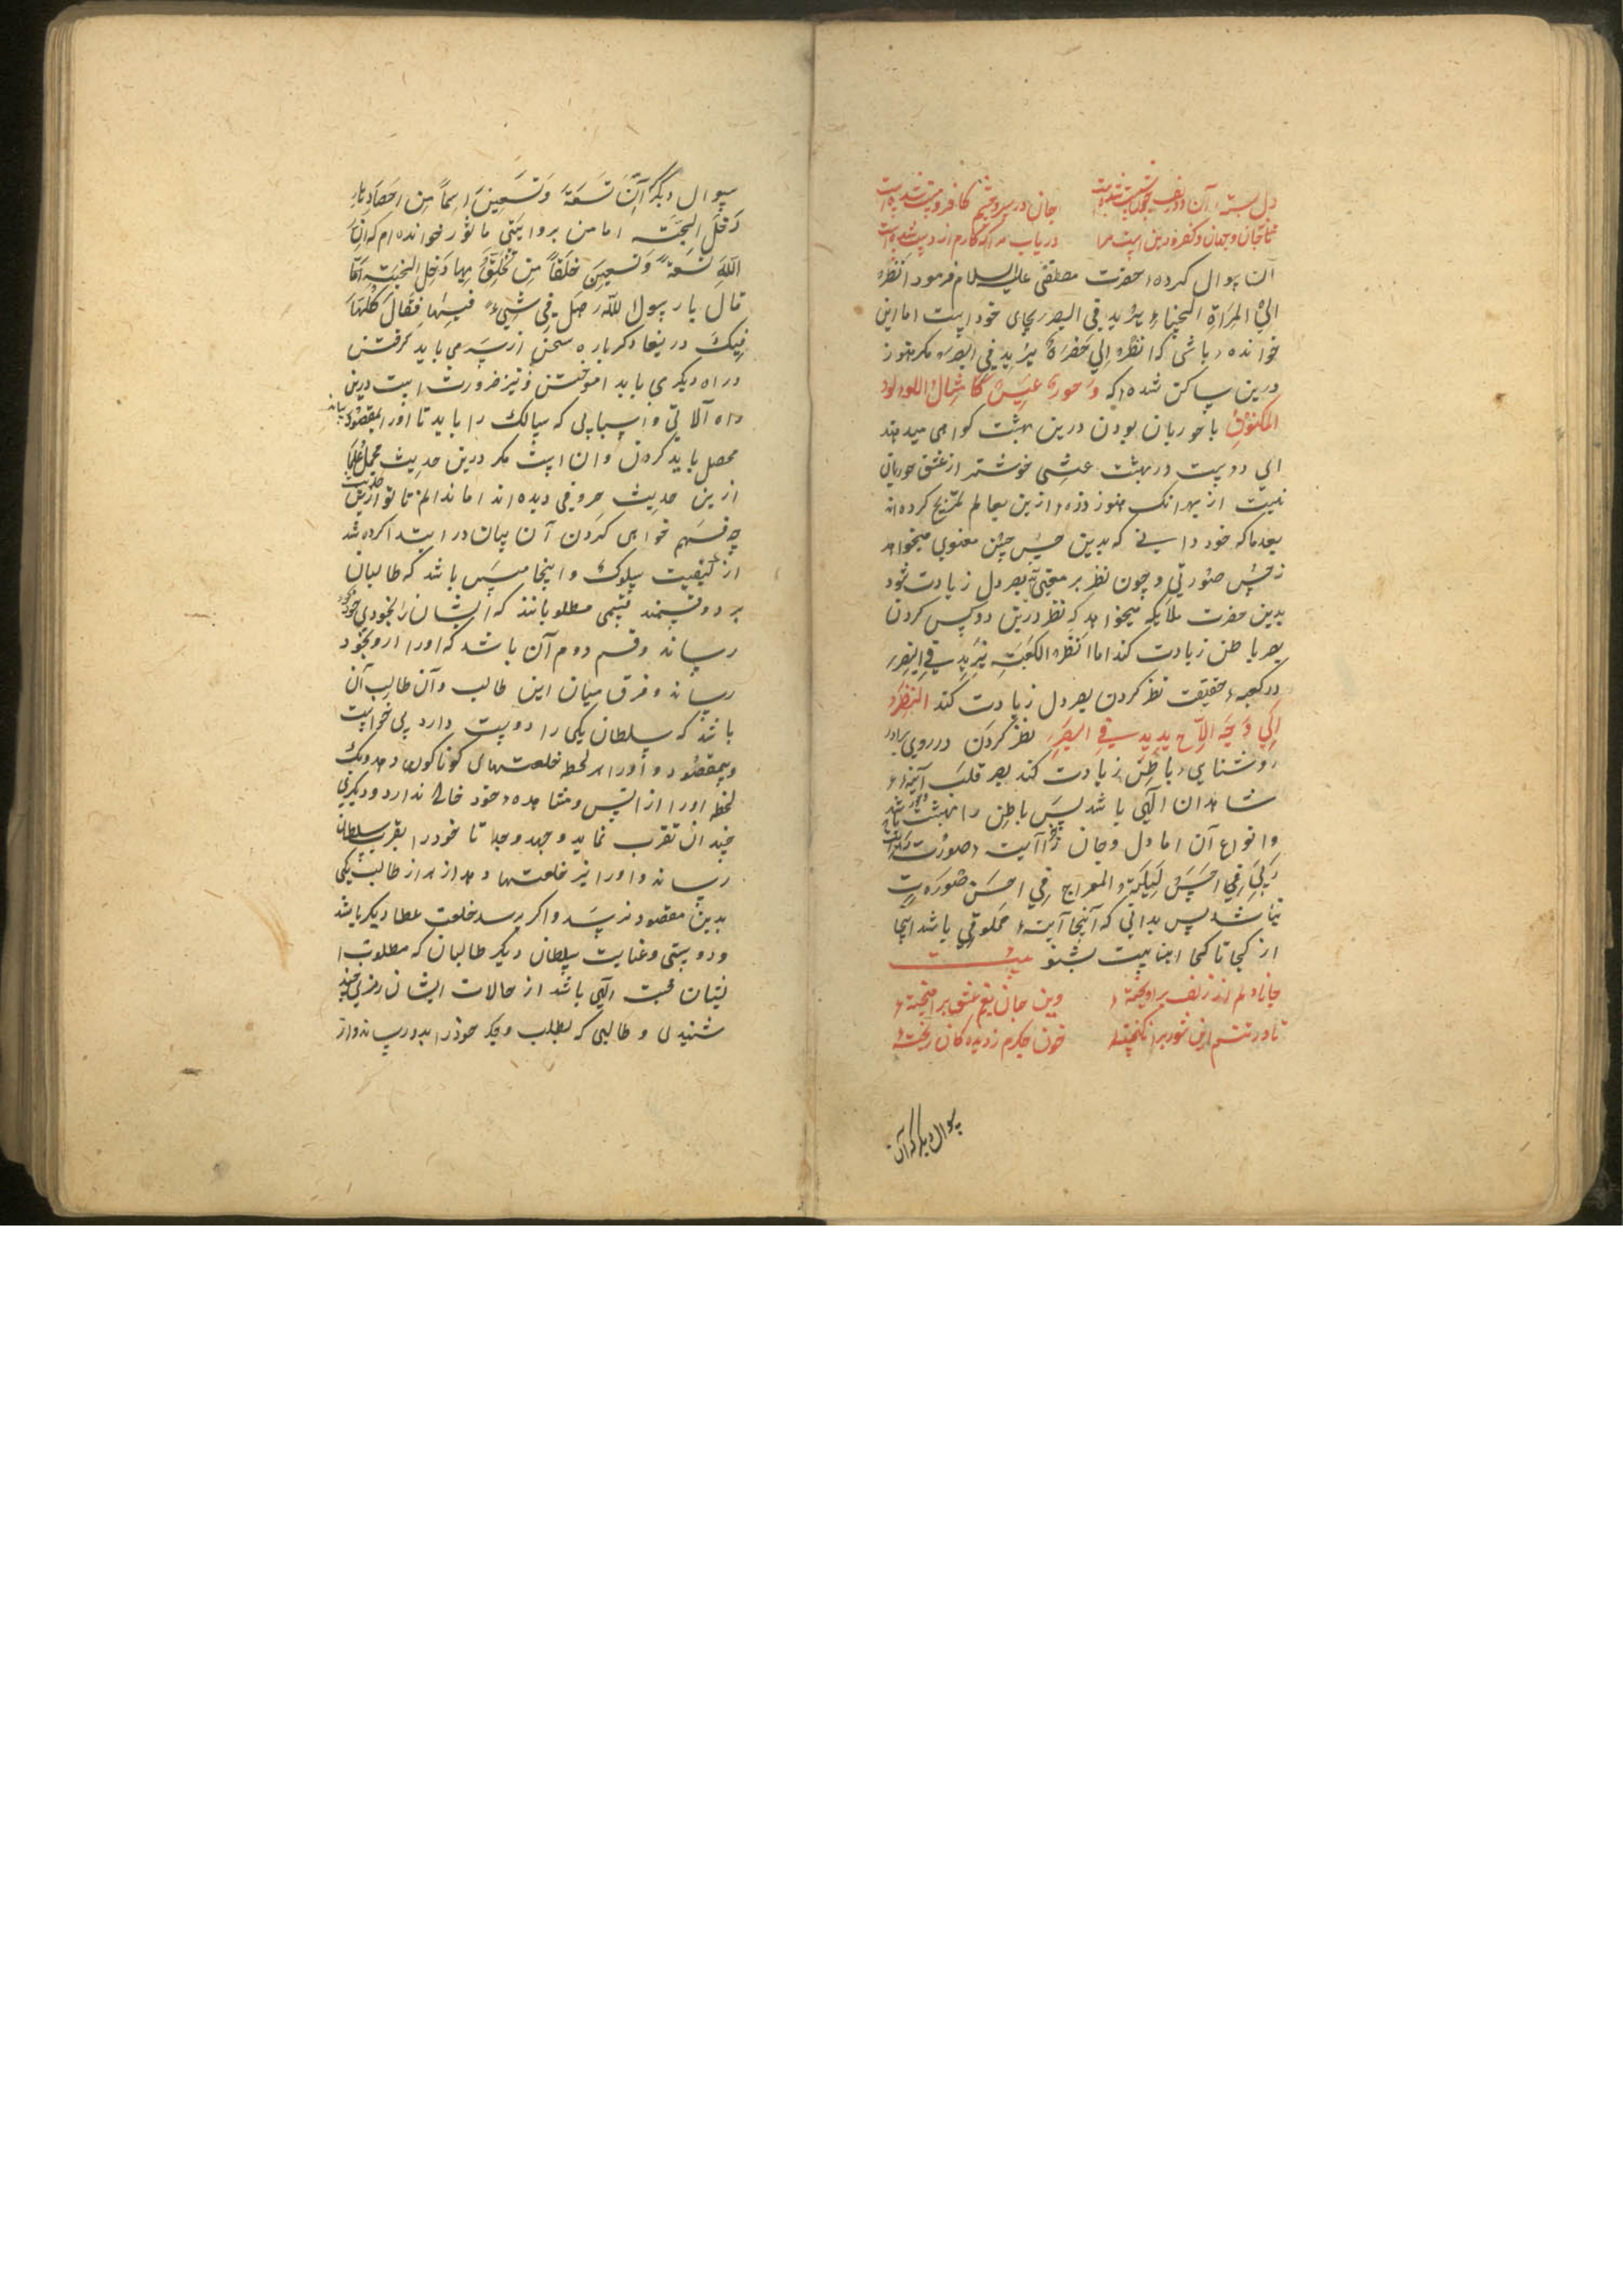 دل بسته آن دو زلف
جان در سر و چشم کافر و مست شده است
جان و جهان و کفر و دین است مرا
دریاب مرا که کارم از دست شده است
آن سوال کرده حضرت مصطفی علیه السلام فرمود انظر
الی المراة الحسناء یزید فی البصر بجای خود است اما این
خوانده باشی که انظر الی خضرة یزید فی البصر مکر هنوز
درین ساکن شده که و حور عین کامثال اللولو
المکنون با حوریان بودن درین بهشت کواهی میدهند
ای دوست در بهشت عشی خوشتر از عشق حوریان
نیست از بهر انک هنوز ذره ازین بعالم کرده اند
بعد ما که خود دانی که بدین حسن حسن معنوی میخواهد
ز حسن صورتی و چون نظر بر معنی بصر دل زیادت شود
بدین حضرت ملایکه میخواهد که نظر درین دو کس کردن
بصر باطن زیادت کند اما انظر الکعبة یزید فی البصر
در کعبه حقیقت نظر کردن بصر دل زیادت کند النظر
الی وجه الاخ یزید فی البصر نظر کردن در روی برادر
روشنایی باطن زیادت کند بصر قلب آینه
شاهدان الهی باشد پس باطن را بهشت باشد
و انواع آن اما دل و جان را صورت رایت
ربی فی احسن لیلة المعراج فی احسن صورة
نباشد پس بدانی که آنجا آیت مخلوقی باشد اینجا
از کجا تا کجا اینا نیست بشنو بیت
جانا دلم از زلف بر آویخته
وین جان تیغ عشق بر آمیخته
تا در تنم این شور بر انکیخته
خون جکرم ز دیدکان ریخته
سوال دیکر که آن
سوال دیکر ان تسعة و تسعین اسما من احصاها
دخل الجنة اما من بروایتی ماثور خوانده ام که ان
الله تسعة و تسعین خلقا من تخلق بها دخل الجنة اما
قال یا رسول الله صل فی شیء فیها فقال کلها
فیک دریغا دکر باره سخن از سر می باید کرفتن
در راه دیکر می باید آموختن و نیز ضرورت است درین
راه آلاتی و اسبابی که سالک را باید تا او را بمقصود رساند
محصل باید کردن و آن است مکر درین حدیث مجمل علما
ازین حدیث حروفی دیده اند اما ندانم تا تو ازین حدیث
چه فهم خواهی کردن آن بیان در ابتدا کرده شد
از کیفیت سلوک و اینجا میپس باشد که طالبان
بر دو قسمند قسمی مطلوبانند که ایشان را بخودی خود
رساند و قسم دوم آن باشد که او را او بخود
رساند و فرق میان این طالب و آن طالب آن
باشد که سلطان یکی را دوست دارد بی خواست
و بیمقصود و او را هر لحظه خلعتهای کوناکون دهد و یک
لحظه او را از انس و مشاهده خود خالی ندارد و دیکری
چندان تقرب نماید و جهد و جد تا خود را بقرب سلطان
رساند و او را نیز خلعتها دهد از هزار طالب یکی
بدین مقصود نرسد و اکر برسد خلعت عطا دیکر باشد
و دوستی و عنایت سلطان دیکر طالبان که مطلوب
نشان محبت الهی باشد از حالات ایشان رمزی چند
شنیدی و طالبی که بطلب و جد خود را بدو رساند و از